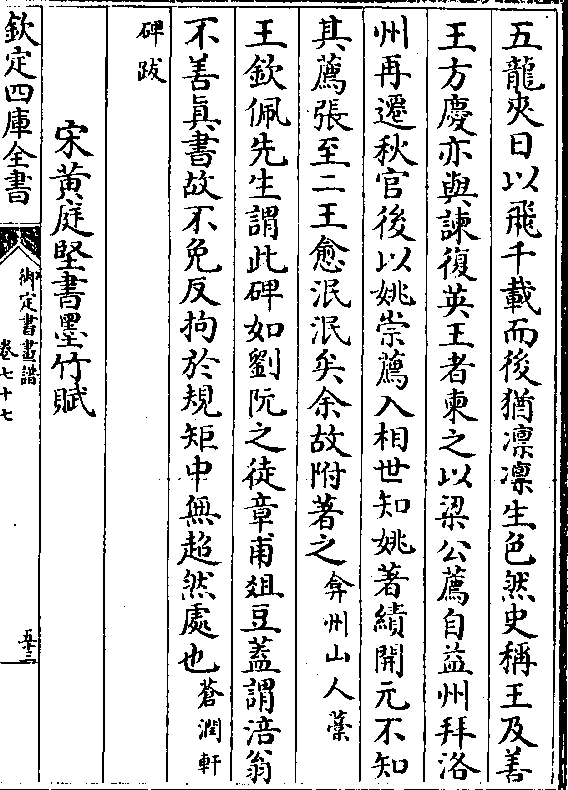 五龍夾日以飛千載而後猶凛凛生色然史稱王及善
王方慶亦與諫復英王者柬之以梁公薦自益州拜洛
州再遷秋官後以姚崇薦入相世知姚著績開元不知
其薦張至二王愈泯泯矣余故附著之弇州山人藁
王欽佩先生謂此碑如劉阮之徒章甫俎豆蓋謂涪翁
不善眞書故不免反拘於規矩中無超然處也蒼潤軒
碑跋
宋黃庭堅書墨竹賦
欽定四庫全書
御定書畫譜
卷七十七
五十三